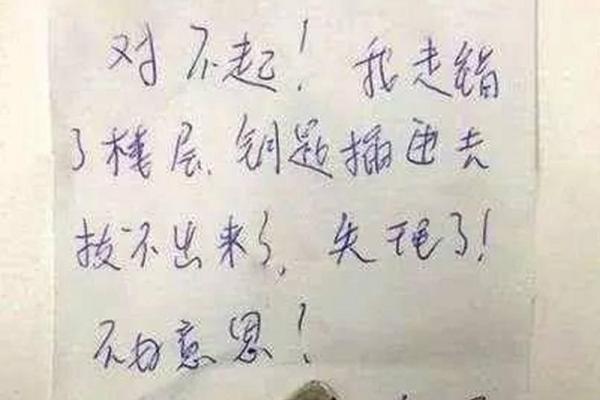 对不起！我走错
了楼层、钥匙插进去
拔不出来了，失礼了！
不好意思！